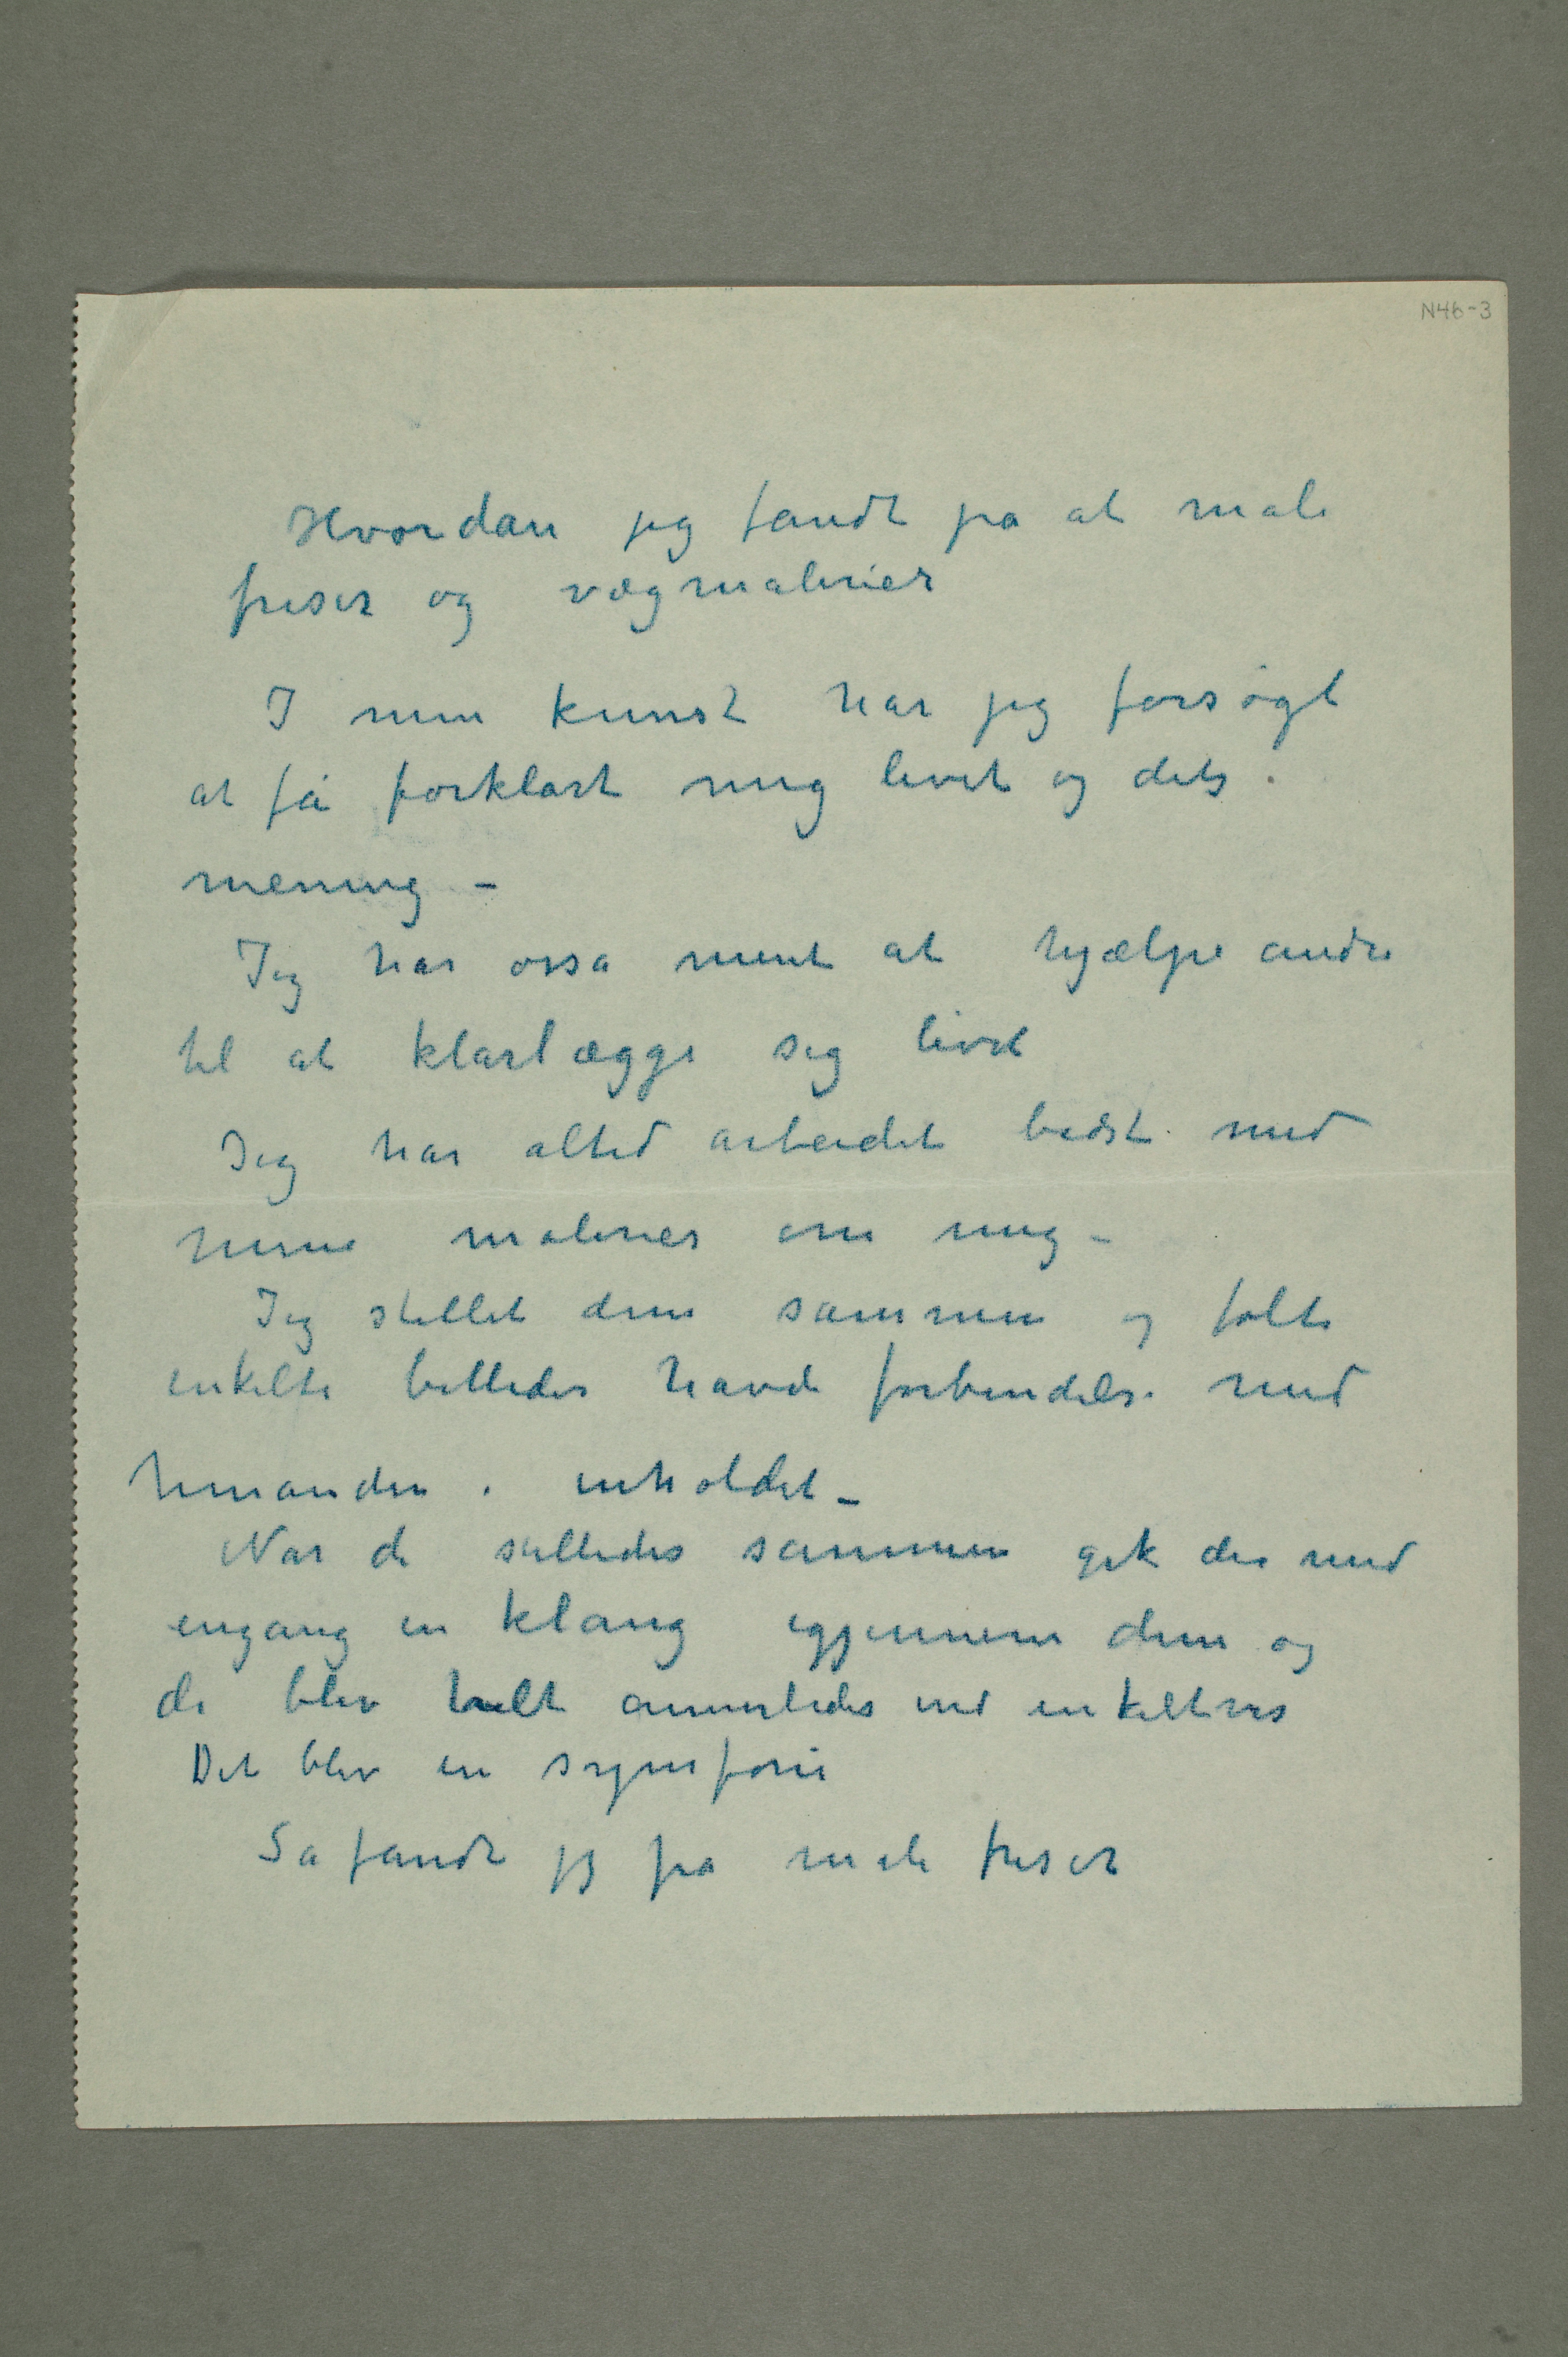 N46-3
Hvordan jeg fandt pa at male
friser og vægmalerier
I min kunst har jeg forsøgt
at få forklart mig livet og dets
mening –
Jeg har ossa ment at hjælpe andre
til at klarlægge seg livet
Jeg har altid arbeidet bedst med
mine malerier om mig –
Jeg stellet dem sammen og følte
enkelte billeder havde forbindelse med
hinanden i inholdet –
Nar de stilledes sammen gik der med
engang en klang igjennem dem og
de blev helt annerledes end enkeltvis
Det blev en symfoni
Sa fandt jeg pa male friser